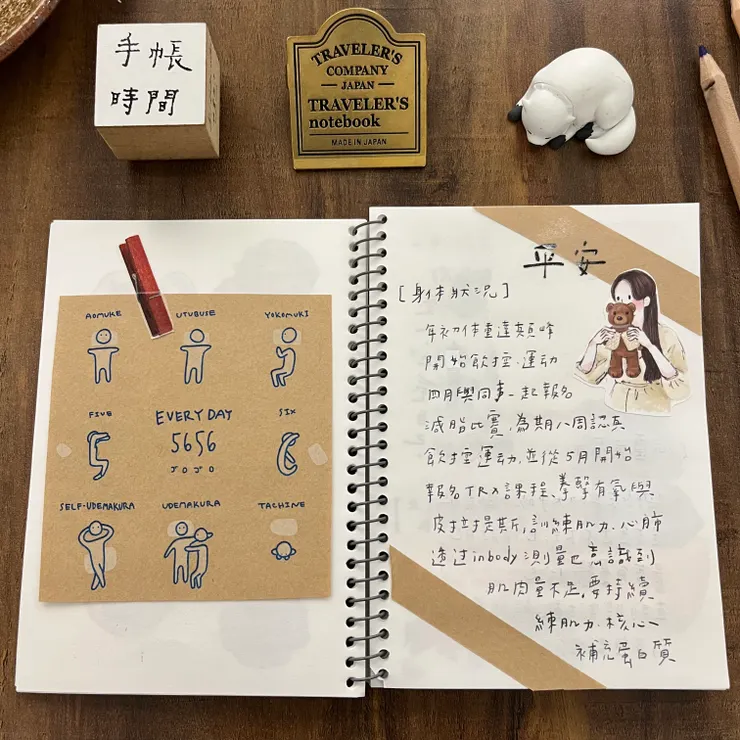 手帳
時間
TRAVELER'S
COMPANY
JAPAN
TRAVELER'S
notebook
MADE IN JAPAN
AOMUKE
UTUBUSE
YOKOMUKI
FIVE
EVERYDAY
5656
JOJO
SIX
SELF-UDEMAKURA
UDEMAKURA
TACHINE
平安
[身体狀況]
年初体重達顛峰
開始飲控、運动
四月與同事一起報名
減脂比賽,為期八周認真
飲控運动,並從5月開始
報名TRX課程、拳擊有氧與
皮拉提斯,訓練肌力、心肺
透过inbody測量也意識到
肌肉量不足,要持續
練肌力、核心、
補充蛋白質